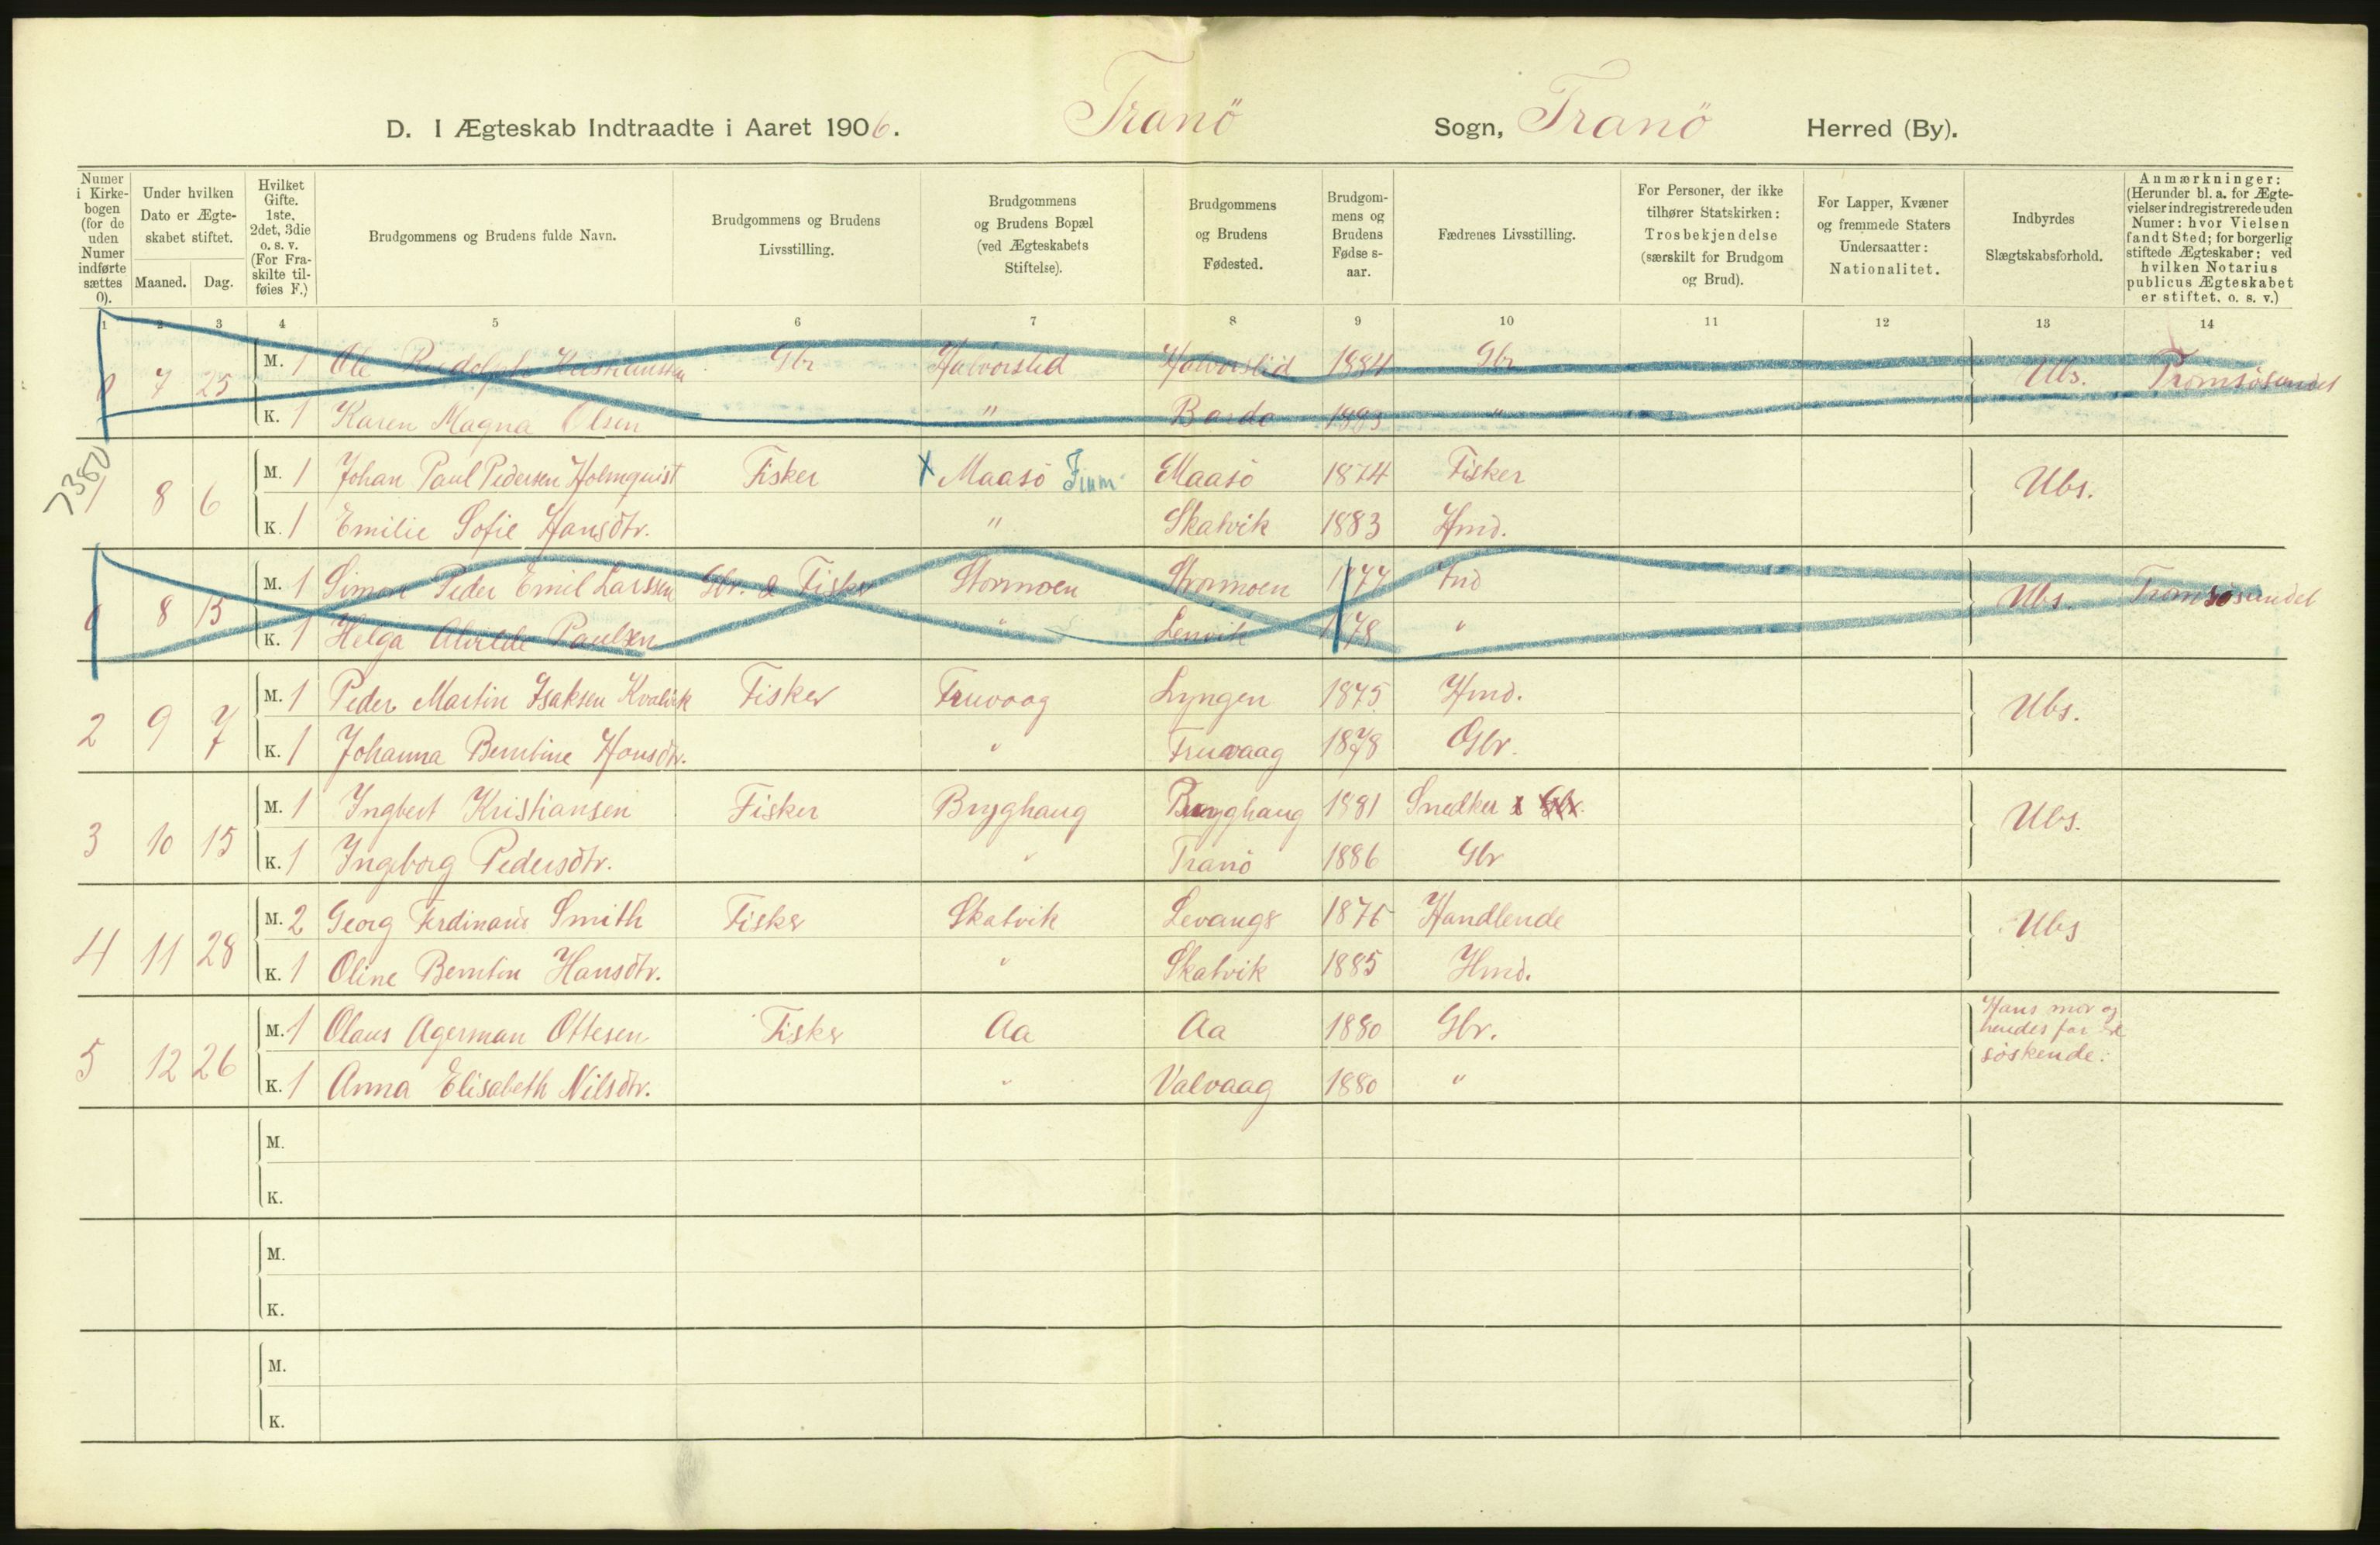 D. I Ægteskab Indtraadte i Aaret 1906. Tranö Sogn, Tranö Herred (By).
Numer i Kirkebogen (for de uden Numer indførte sættes 0).
Under hvilken Dato er Ægteskabet stiftet.
Maaned. Dag.
Hvilket Gifte. 1ste, 2det, 3die o. s. v. (For Fraskilte tilføies F.)
Brudgommens og Brudens fulde Navn.
Brudgommens og Brudens Livsstilling.
Brudgommens og Brudens Bopæl (ved Ægteskabets Stiftelse).
Brudgommens og Brudens Fødested.
Brudgommens og Brudens Fødselsaar.
Fædrenes Livsstilling.
For Personer, der ikke tilhører Statskirken: Trosbekjendelse (særskilt for Brudgom og Brud).
For Lapper, Kvæner og fremmede Staters Undersaatter: Nationalitet.
Indbyrdes Slægtskabsforhold.
Anmærkninger: (Herunder bl. a. for Ægtevielser indregistrerede uden Numer: hvor Vielsen fandt Sted; for borgerlig stiftede Ægteskaber: ved hvilken Notarius publicus Ægteskabet er stiftet. o. s. v.)
1 2 3 4 5 6 7 8 9 10 11 12 13 14
0 7 25 M. 1 Ole Rudolph Kristiansen Gbr Halvorslid Halvorslid 1884 Gbr Ubs. Tromsösundet
K. 1 Karen Magna Olsen " Bardo "
7380
1 8 6 M. 1 Johan Paul Pedersen Holmquist Fisker x Maasö Finm. Maasö 1874 Fisker Ubs.
K. 1 Emilie Sofie Hansdtr. " Skatvik 1883 Hmd.
0 8 15 M. 1 Simon Peder Emil Larssen Gbr. & Fisker Stormoen Stormoen 1877 Ind Ubs. Tromsösundet
K. 1 Helga Alvilde Paulsen " Lenvik 1878 "
2 9 7 M. 1 Peder Martin Isaksen Kvalvik Fisker Fruvaag Lyngen 1875 Hmd. Ubs.
K. 1 Johanna Berntine Hansdtr. " Fruvaag 1878 Gbr.
3 10 15 M. 1 Ingbert Kristiansen Fisker Bryghaug Bryghaug 1881 Snedker & Gbr. Ubs.
K. 1 Ingeborg Pedersdtr. " Tranö 1886 Gbr
4 11 28 M. 2 Georg Ferdinand Smith Fisker Skatvik Levanger 1876 Handlende Ubs
K. 1 Oline Berntin Hansdtr. " Skatvik 1885 Hmd.
5 12 26 M. 1 Olaus Agerman Ottesen Fisker Aa Aa 1880 Gbr. Hans mor og
hendes far er
söskende.
K. 1 Anna Elisabeth Nilsdtr. " Valvaag 1880 "
M.
K.
M.
K.
M.
K.